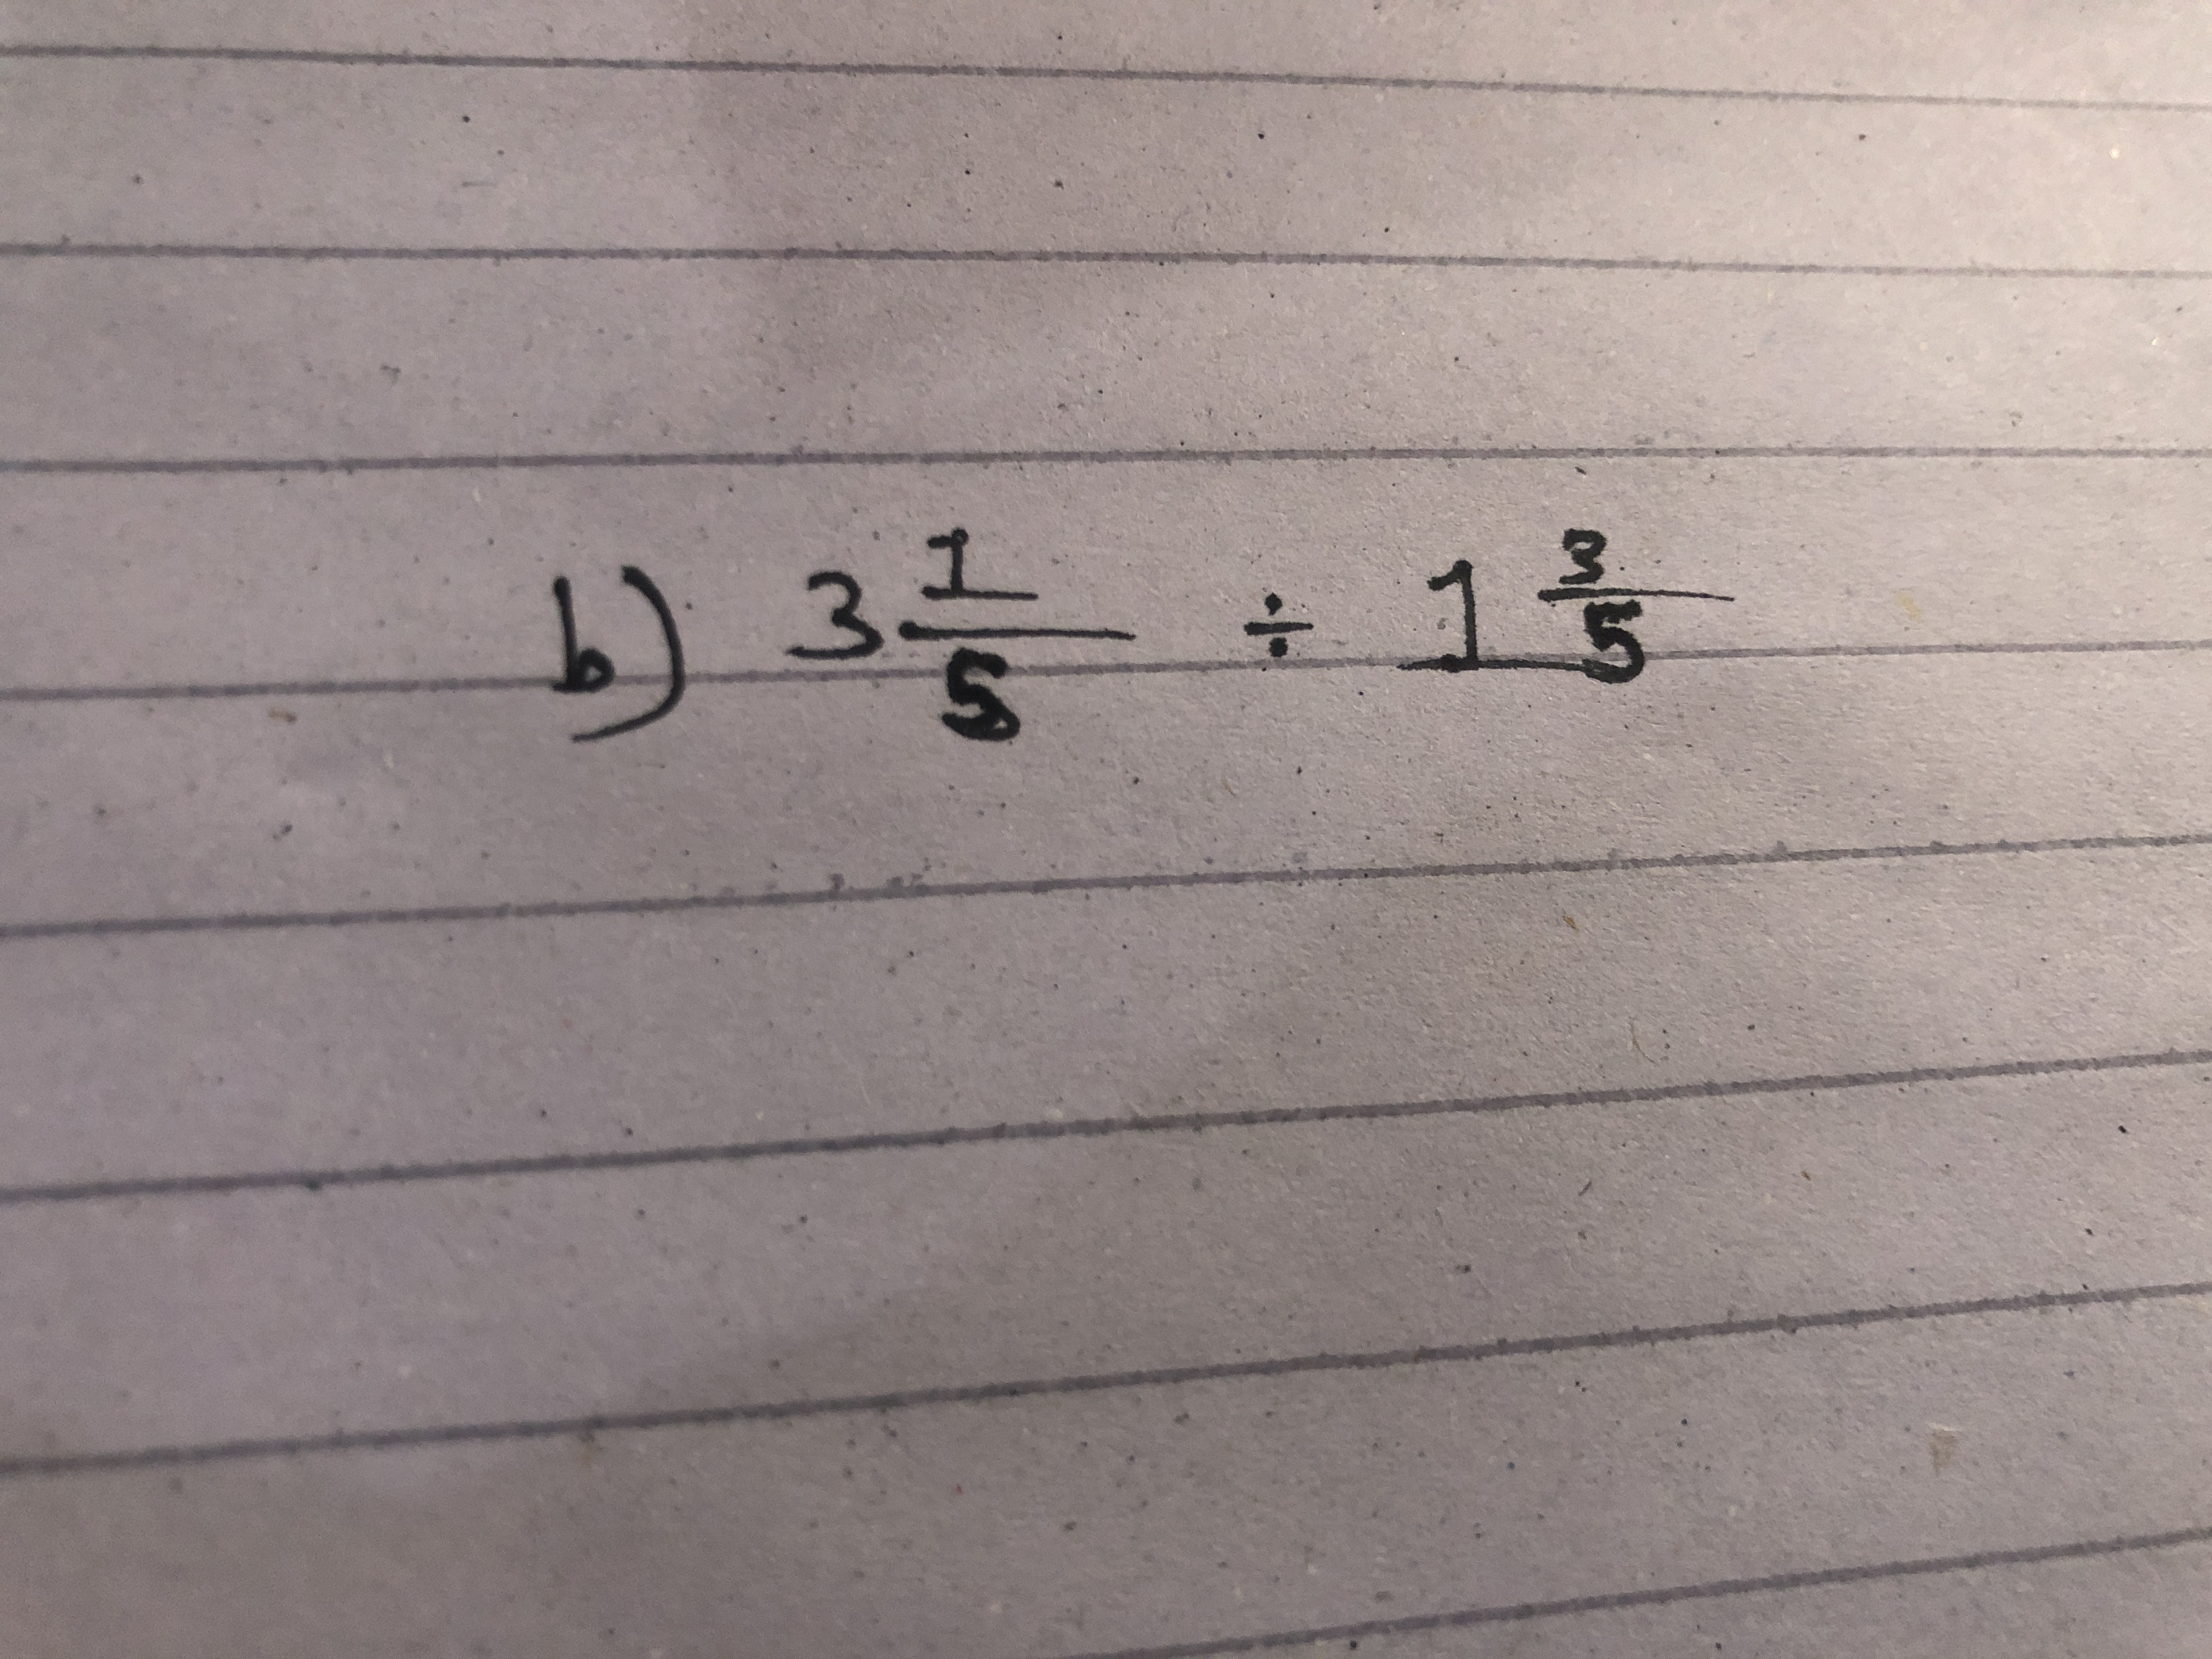 b) 3 1/5 ÷ 1 3/5